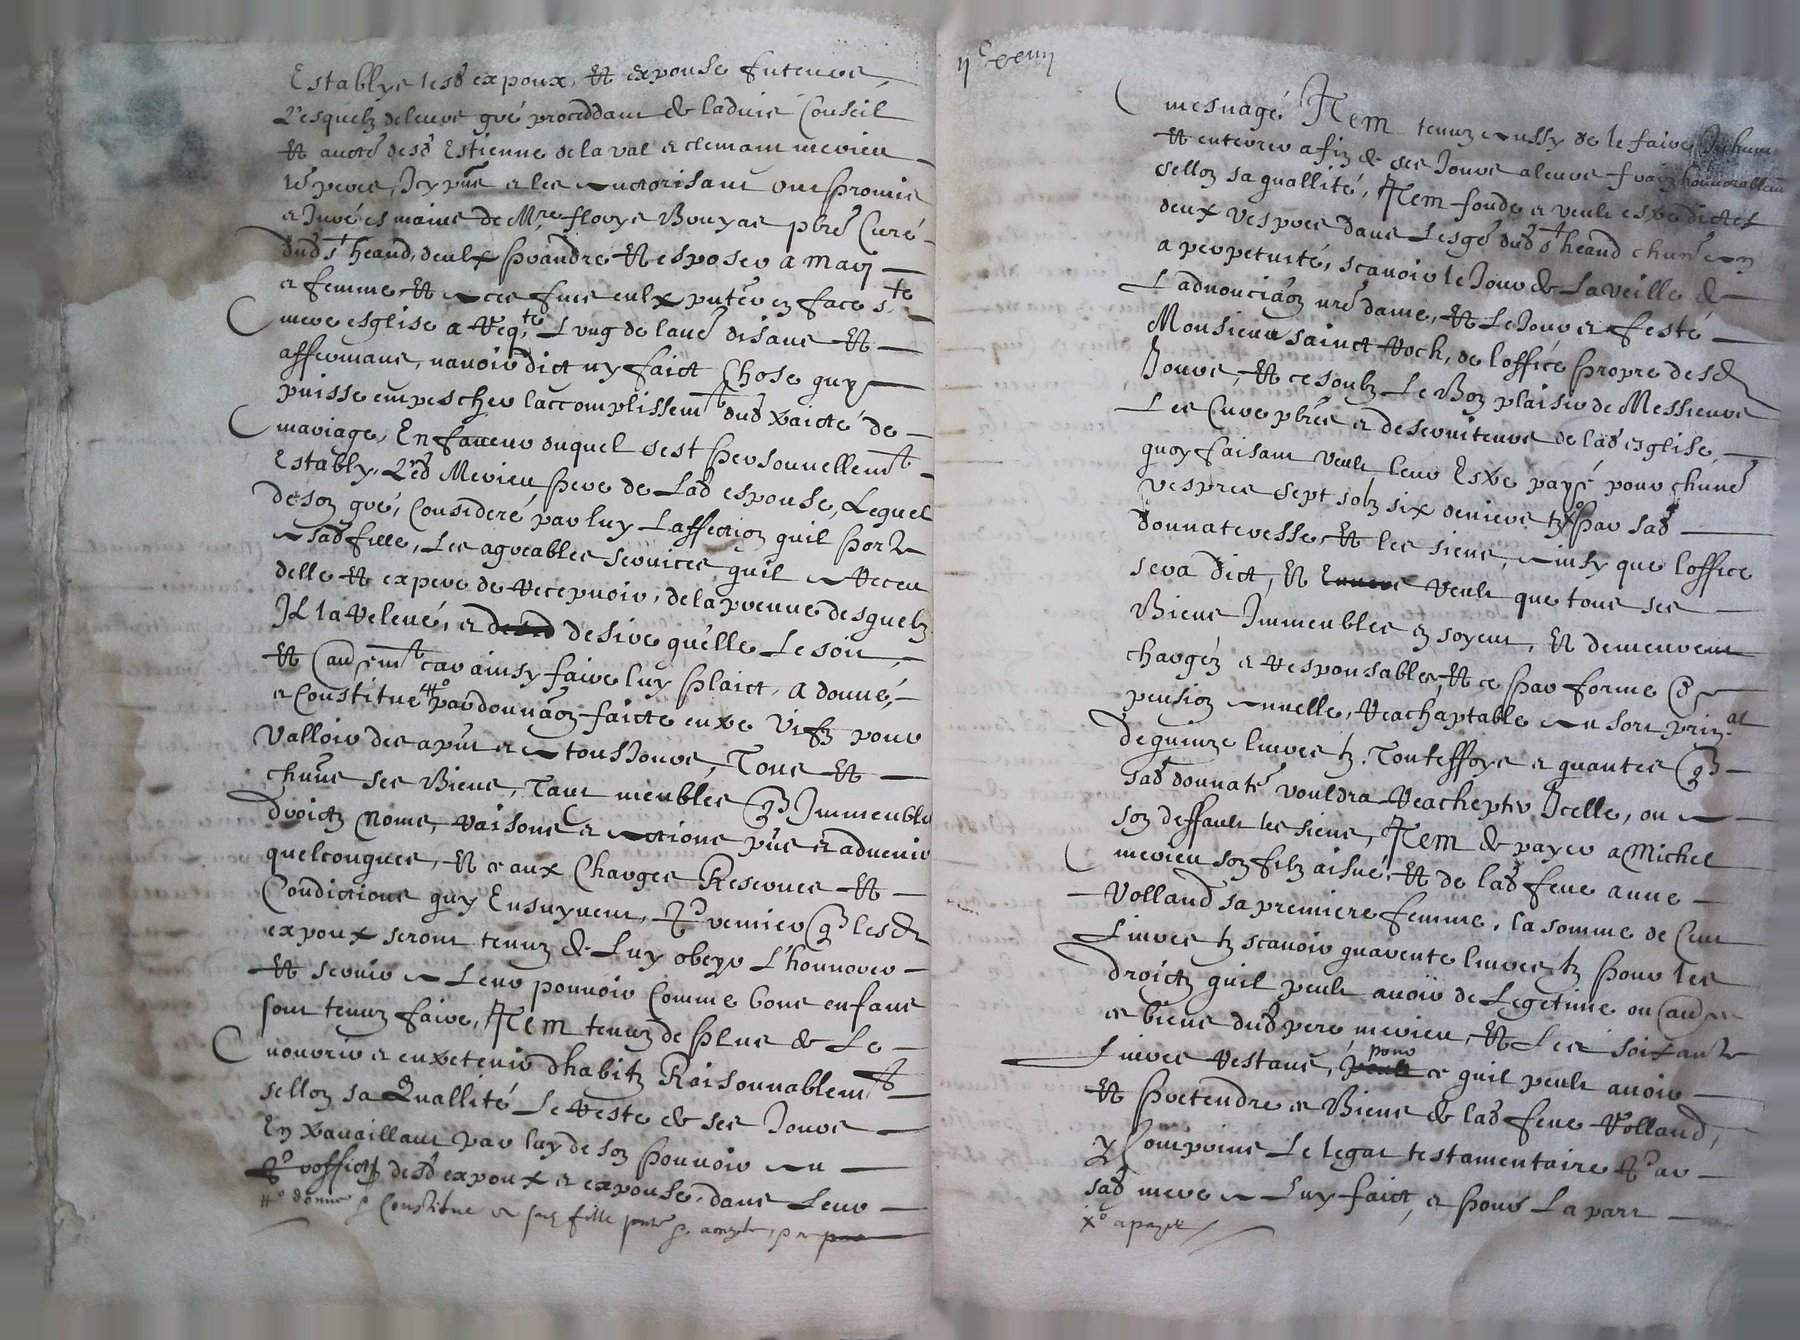 Establys lesd expoux, et expouse futeurs,
Lesquelz de leurs gré proceddant & ladvis Conseil
et aucté desd Estienne de la val et clemant mevieu
lrs peres, Icy pns et les auctorisant ont promis
et Juré es mains de Mre flory Bouyas pbre Curé
dud St heand, deulx prandre et esposer a mary
et femme et a ces fins eulx pnter en face ste
mere esglise a Reqte Lung de laue disans et
affermans, navoir dict ny faict Chose quy
puisse empescher laccomplissemt dud traicté de
mariage, En faveur duquel sest personnellemt
Estably, Led Mevieu pere de Lad espouse, Lequel
de son gré, Consideré par luy Laffection quil porte
a sad fille, Les agreables services quil a Receu
delle et expere de Recepvoir, de la preuve desquelz
Il la Relevé, et desire quelle Le soit,
et car ainsy faire luy plaict, a donné,
et Constitué par donnaon faicte entre vifz pour
valloir des apnt et a tousJours, Tous et
chuns ses Biens, Tant meubles que Immeubles
droictz Noms, raisons et actions pns et advenir
quelconques, et ce aux Charges Reserves et
Condictions quy Ensuyvent, Premier que lesd
expoux seront tenuz & Luy obeyr L'honnorer
et servir a Leur pouvoir Comme bons enfans
sont tenuz faire, Item tenuz de plus & Le
nourrir et entretenir dhabitz Raisonnablemt
sellon sa Quallité Le Reste & ses Jours
En travaillant par luy de son pouvoir au
proffict desd expoux et expouse, dans Leur
donne & Constitue a sad fille
mesnagé Item tenuz aussy de le faire Inhumer
et enterrer a fin & ses Jours a leurs frais honnorablemt
sellon sa quallité, Item fonde et veult estre dictes
deux vespres dans Lesgé dud St heand chune an
a perpetuité, scavoir le Jour & La veille &
Ladnonciaon nre dame, et Le Jour et feste
Monsieur sainct Roch, de loffice propre desd
Jours, et ce soubz Le Bon plaisir de Messieurs
Les Cure pbres et deserviteurs de lad esglise,
quoy faisant veult leur Estre payé pour chune
vespres sept solz six deniers tz par sad
donnateresse et les siens, ainsy que loffice
sera dict, Et veult que tous ses
Biens Immeubles en soyent, et demeurent
chargéz et responsables et ce par forme &
pension annuelle, Reachaptable au sort prinal
de quinze livres tz. Touteffoys et quantes que
sad donnaté vouldra Reachepter Icelle, ou a
son deffault les siens, Item & payer a Michel
mevieu son filz aisné, et de lad feue anne
Volland sa premiere femme, la somme de Cent
Livres tz scavoir quarente livres tz pour les
droictz quil peult avoir de Legetime ou
es biens dud pere mevieu, et Les soixante
Livres restans, pour ce quil peult avoir
et pretendre es Biens & lad feue Volland,
y Compoins Le legat testamentaire par
sad mere a Luy faict, et pour La part
xo a payer